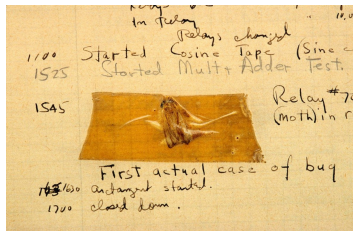 In Relay
Relays changed
1100 Started Cosine Tape (Sine c
1525 Started Mult + Adder Test.
1545 Relay #70
(moth) in r
First actual case of bug
1630 antangent started.
1700 closed down.